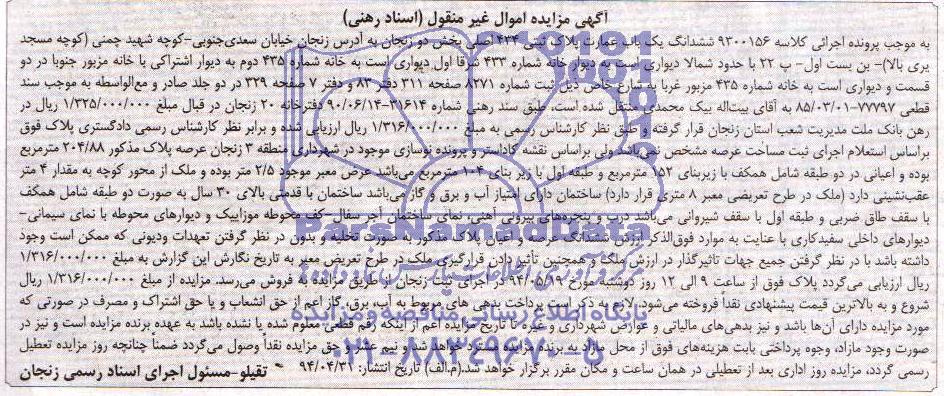 آگهی مزایده اموال غیر منقول (اسناد رهنی)
به موجب پرونده اجرائی کلاسه ۹۳۰۰۱۵۶ ششدانگ یک باب عمارت پلاک ثبتی ۴۳۴ اصلی بخش دو زنجان به آدرس زنجان خیابان سعدی‌جنوبی-کوچه شهید چمنی (کوچه مسجد
یری بالا)- بن بست اول- پ ۲۲ با حدود شمالا دیواری است به دیوار خانه شماره ۴۳۳ شرقا اول دیواری است به خانه شماره ۴۳۵ دوم به دیوار اشتراکی با خانه مزبور جنوبا در دو
قسمت و دیواری است به خانه شماره ۴۳۵ مزبور غربا به شارع خاص ذیل ثبت شماره ۸۲۷۱ صفحه ۳۱۱ دفتر ۸۳ و دفتر ۷ صفحه ۳۲۹ در دو جلد صادر و مع‌الواسطه به موجب سند
قطعی ۷۷۷۹۷-۸۵/۰۳/۰۱ به آقای بیت‌اله بیک محمدی منتقل شده است. طبق سند رهنی شماره ۳۱۶۱۴-۹۰/۰۶/۱۴ دفترخانه ۲۰ زنجان در قبال مبلغ ۱/۳۲۵/۰۰۰/۰۰۰ ریال در
رهن بانک ملت مدیریت شعب استان زنجان قرار گرفته و طبق نظر کارشناس رسمی به مبلغ ۱/۳۱۶/۰۰۰/۰۰۰ ریال ارزیابی شده و برابر نظر کارشناس رسمی دادگستری پلاک فوق
براساس استعلام اجرای ثبت مساحت عرصه مشخص نمی‌باشد ولی براساس نقشه کاداستر و پرونده نوسازی موجود در شهرداری منطقه ۳ زنجان عرصه پلاک مذکور ۲۰۴/۸۸ مترمربع
بوده و اعیانی در دو طبقه شامل همکف با زیربنای ۱۵۲ مترمربع و طبقه اول با زیر بنای ۱۰۴ مترمربع می‌باشد عرض معبر موجود ۲/۵ متر بوده و ملک از محور کوچه به مقدار ۴ متر
عقب‌نشینی دارد (ملک در طرح تعریضی معبر ۸ متری قرار دارد) ساختمان دارای امتیاز آب و برق و گاز می‌باشد ساختمان با قدمتی بالای ۳۰ سال به صورت دو طبقه شامل همکف
با سقف طاق ضربی و طبقه اول با سقف شیروانی می‌باشد درب و پنجره‌های بیرونی آهنی، نمای ساختمان آجر سفال-کف محوطه موزاییک و دیوارهای محوطه با نمای سیمانی-
دیوارهای داخلی سفیدکاری با عنایت به موارد فوق‌الذکر ارزش ششدانگ عرصه و اعیان پلاک مذکور به صورت تخلیه و بدون در نظر گرفتن تعهدات ودیونی که ممکن است وجود
داشته باشد با در نظر گرفتن جمیع جهات تاثیرگذار در ارزش ملک و همچنین تأثیر دادن قرارگیری ملک در طرح تعریض معبر به تاریخ نگارش این گزارش به مبلغ ۱/۳۱۶/۰۰۰/۰۰۰
ریال ارزیابی می‌گردد پلاک فوق از ساعت ۹ الی ۱۲ روز دوشنبه مورخ ۹۴/۰۵/۱۹ در اجرای ثبت زنجان از طریق مزایده به فروش می‌رسد. مزایده از مبلغ ۱/۳۱۶/۰۰۰/۰۰۰ ریال
شروع و به بالاترین قیمت پیشنهادی نقدا فروخته می‌شود، لازم به ذکر است پرداخت بدهی های مربوط به آب، برق، گاز اعم از حق انشعاب و یا حق اشتراک و مصرف در صورتی که
مورد مزایده دارای آن‌ها باشد و نیز بدهی‌های مالیاتی و عوارض شهرداری و غیره تا تاریخ مزایده اعم از اینکه رقم قطعی معلوم شده یا نشده باشد به عهده برنده مزایده است و نیز در
صورت وجود مازاد، وجوه پرداختی بابت هزینه‌های فوق از محل مازاد به برنده مزایده مسترد خواهد شد و نیم عشر و حق مزایده نقدا وصول می‌گردد ضمنا چنانچه روز مزایده تعطیل
رسمی گردد، مزایده روز اداری بعد از تعطیلی در همان ساعت و مکان مقرر برگزار خواهد شد.(م.الف) تاریخ انتشار: ۹۴/۰۴/۳۱
تقیلو-مسئول اجرای اسناد رسمی زنجان
ParsNamadData
پایگاه اطلاع رسانی مناقصه و مزایده
۰۲۱-۸۸۳۴۹۶۷۰-۵